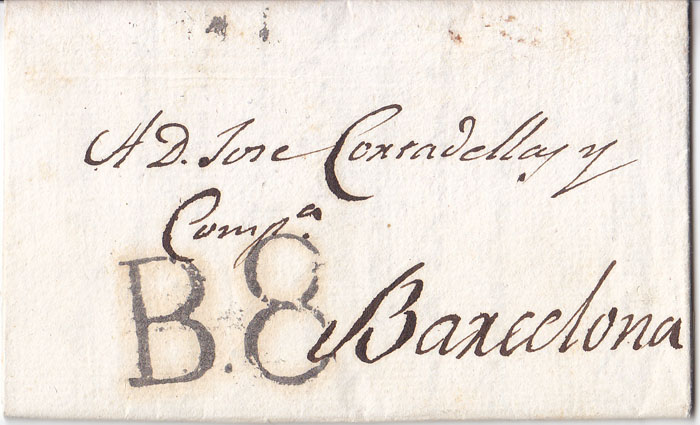 A D. Jose Corradellas y
Comp.ª
B.8
Barcelona